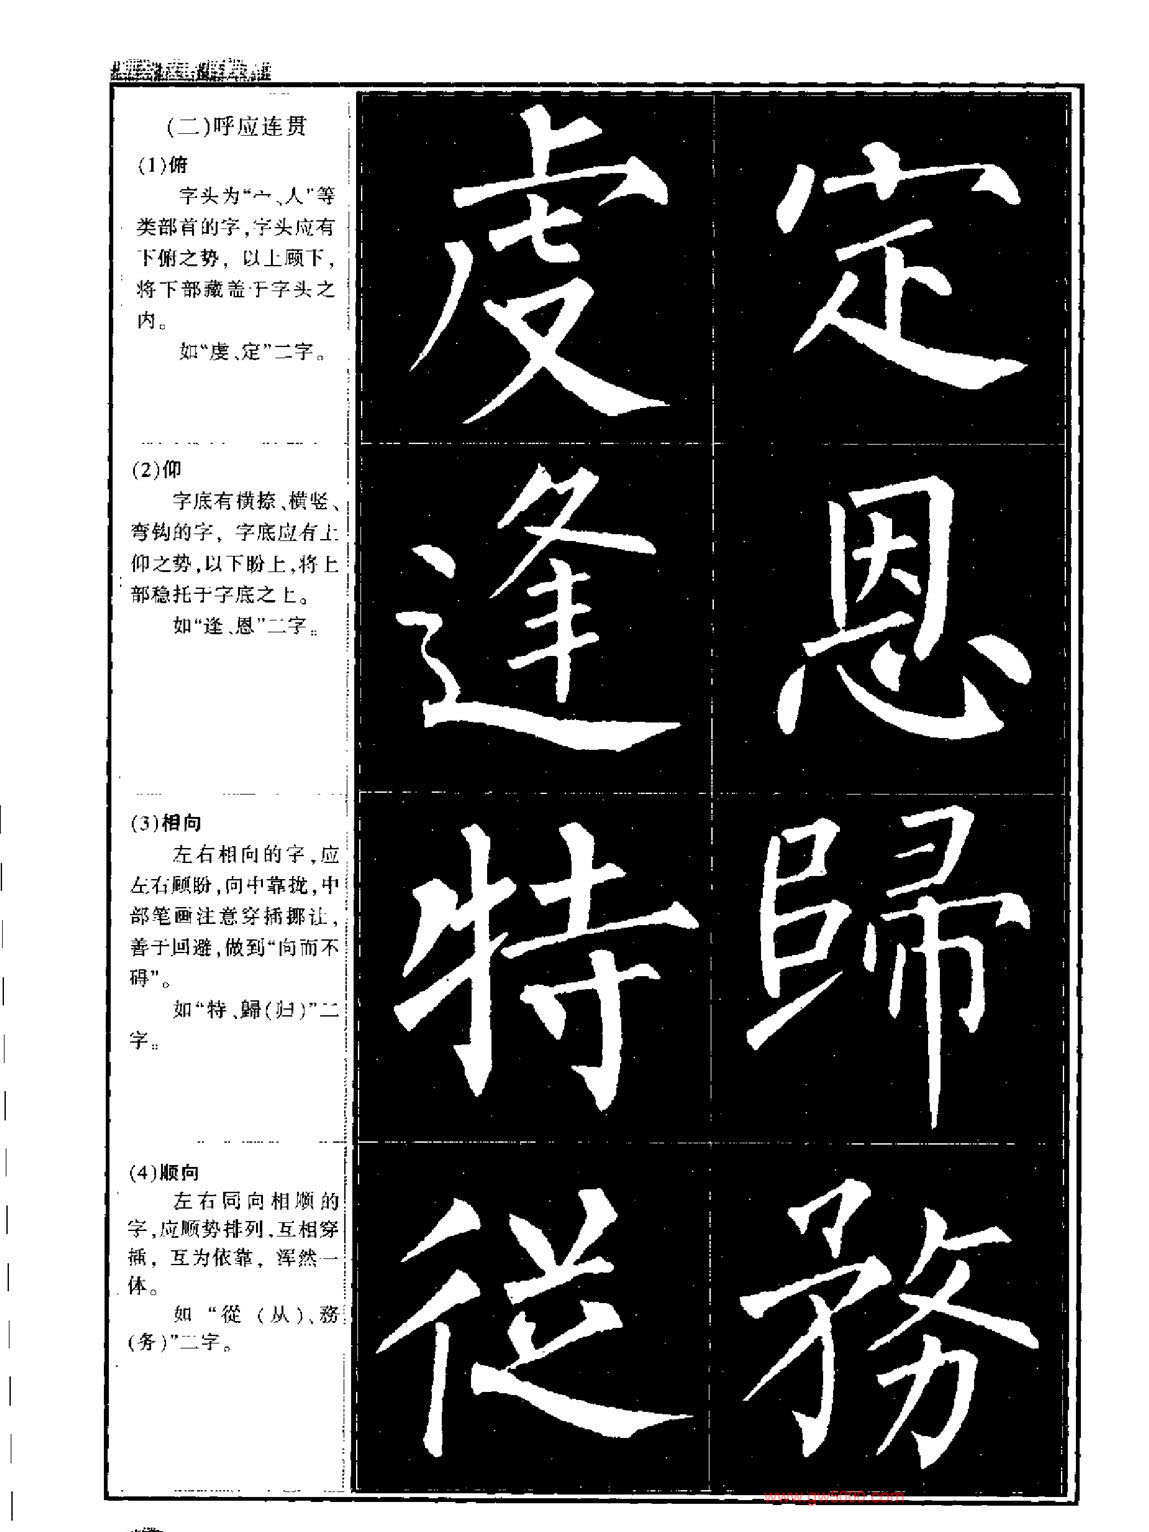 (二)呼应连贯
(1)俯
字头为“宀、人”等
类部首的字,字头应有
下俯之势，以上顾下,
将下部藏盖于字头之
内。
如“虔、定”二字。
虔 定
(2)仰
字底有横捺、横竖、
弯钩的字，字底应有上
仰之势,以下盼上,将上
部稳托于字底之上。
如“逢、恩”二字。
逢 恩
(3)相向
左右相向的字,应
左右顾盼,向中靠拢,中
部笔画注意穿插挪让,
善于回避,做到“向而不
碍”。
如“特、歸(归)”二
字。
特 歸
(4)顺向
左右同向相顺的
字,应顺势排列,互相穿
插，互为依靠，浑然一
体。
如“從(从)、務
(务)”二字。
從 務
www.gw5000.com